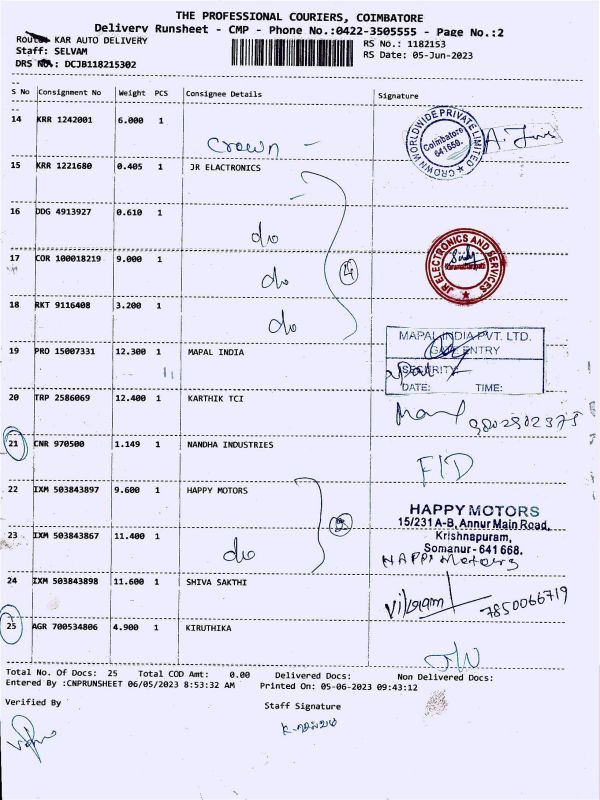 THE PROFESSIONAL COURIERS, COIMBATORE
Delivery Runsheet - CMP - Phone No.:0422-3505555 - Page No.:2
Route: KAR AUTO DELIVERY
RS No.: 1182153
Staff: SELVAM
RS Date: 05-Jun-2023
DRS No.: DCJB118215302
S No Consignment No Weight PCS Consignee Details Signature
14 KRR 1242001 6.000 1
Crown -
CROWN WORLDWIDE PRIVATE LIMITED
Coimbatore
641658.
15 KRR 1221680 0.405 1 JR ELACTRONICS
16 DDG 4913927 0.610 1
do
17 COR 100018219 9.000 1
do
4
JR ELECTRONICS AND SERVICES
18 RKT 9116408 3.200 1
do
19 PRO 15007331 12.300 1 MAPAL INDIA
MAPAL INDIA PVT. LTD.
GATE ENTRY
SECURITY
DATE: TIME:
20 TRP 2586069 12.400 1 KARTHIK TCI
21 CNR 970500 1.149 1 NANDHA INDUSTRIES
22 IXM 503843897 9.600 1 HAPPY MOTORS
HAPPY MOTORS
15/231 A-B, Annur Main Road,
Krishnapuram,
Somanur - 641 668.
23 IXM 503843867 11.400 1
do
HAPPY Motors
24 IXM 503843898 11.600 1 SHIVA SAKTHI
7850066719
25 AGR 700534806 4.900 1 KIRUTHIKA
Total No. Of Docs: 25 Total COD Amt: 0.00 Delivered Docs: Non Delivered Docs:
Entered By :CNPRUNSHEET 06/05/2023 8:53:32 AM Printed On: 05-06-2023 09:43:12
Verified By
Staff Signature